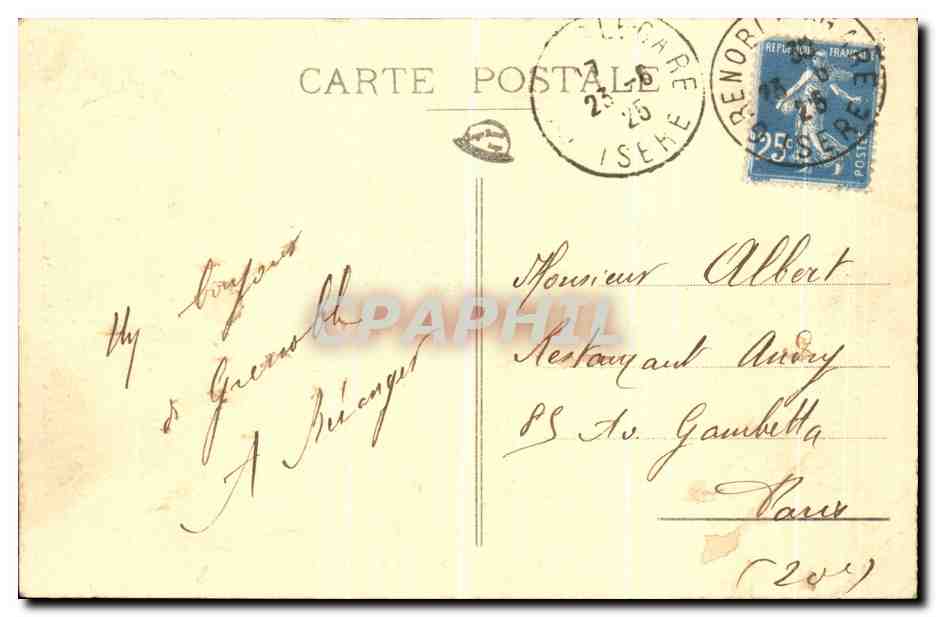 CARTE POSTALE
GARE
7
23 -6
25
ISERE
GRENOBLE GARE
23 6
25
ISERE
REPUBLIQUE FRANÇAISE
25c
POSTES
Un bonjour
de Grenoble
A Béranger
CPAPHIL
Monsieur Albert
Restaurant Andry
85 Av. Gambetta
Paris
(20e)